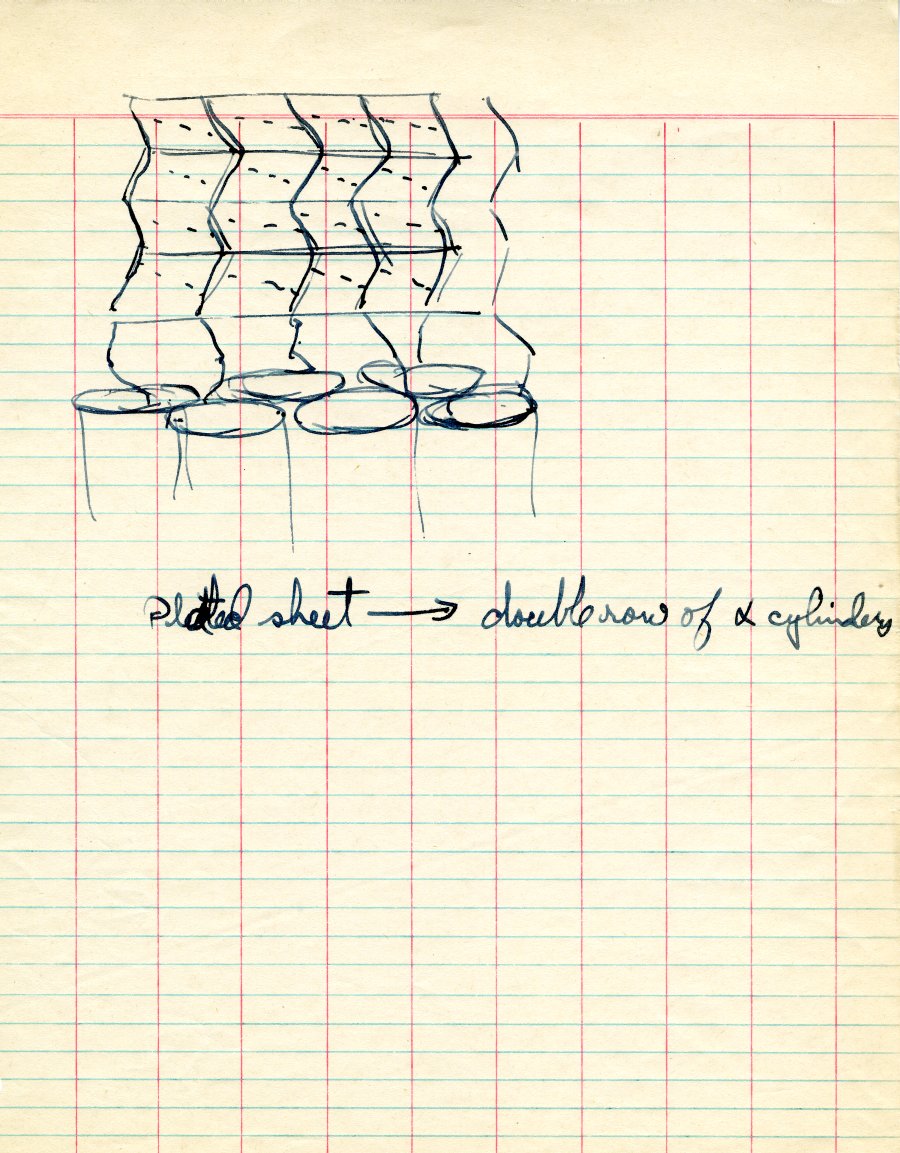 Pleated sheet → double row of α cylinders